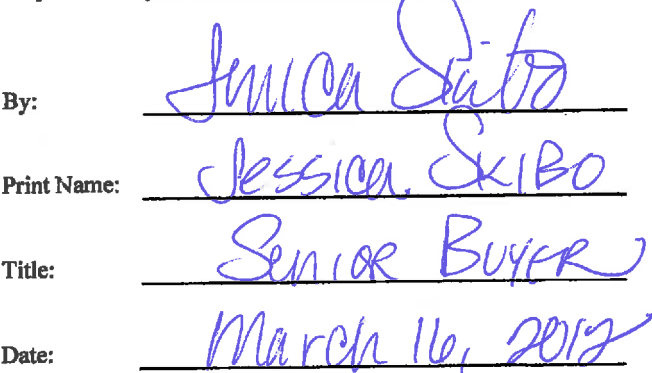 By: Jessica Skibo
Print Name: Jessica SKIBO
Title: SENIOR BUYER
Date: March 16, 2012